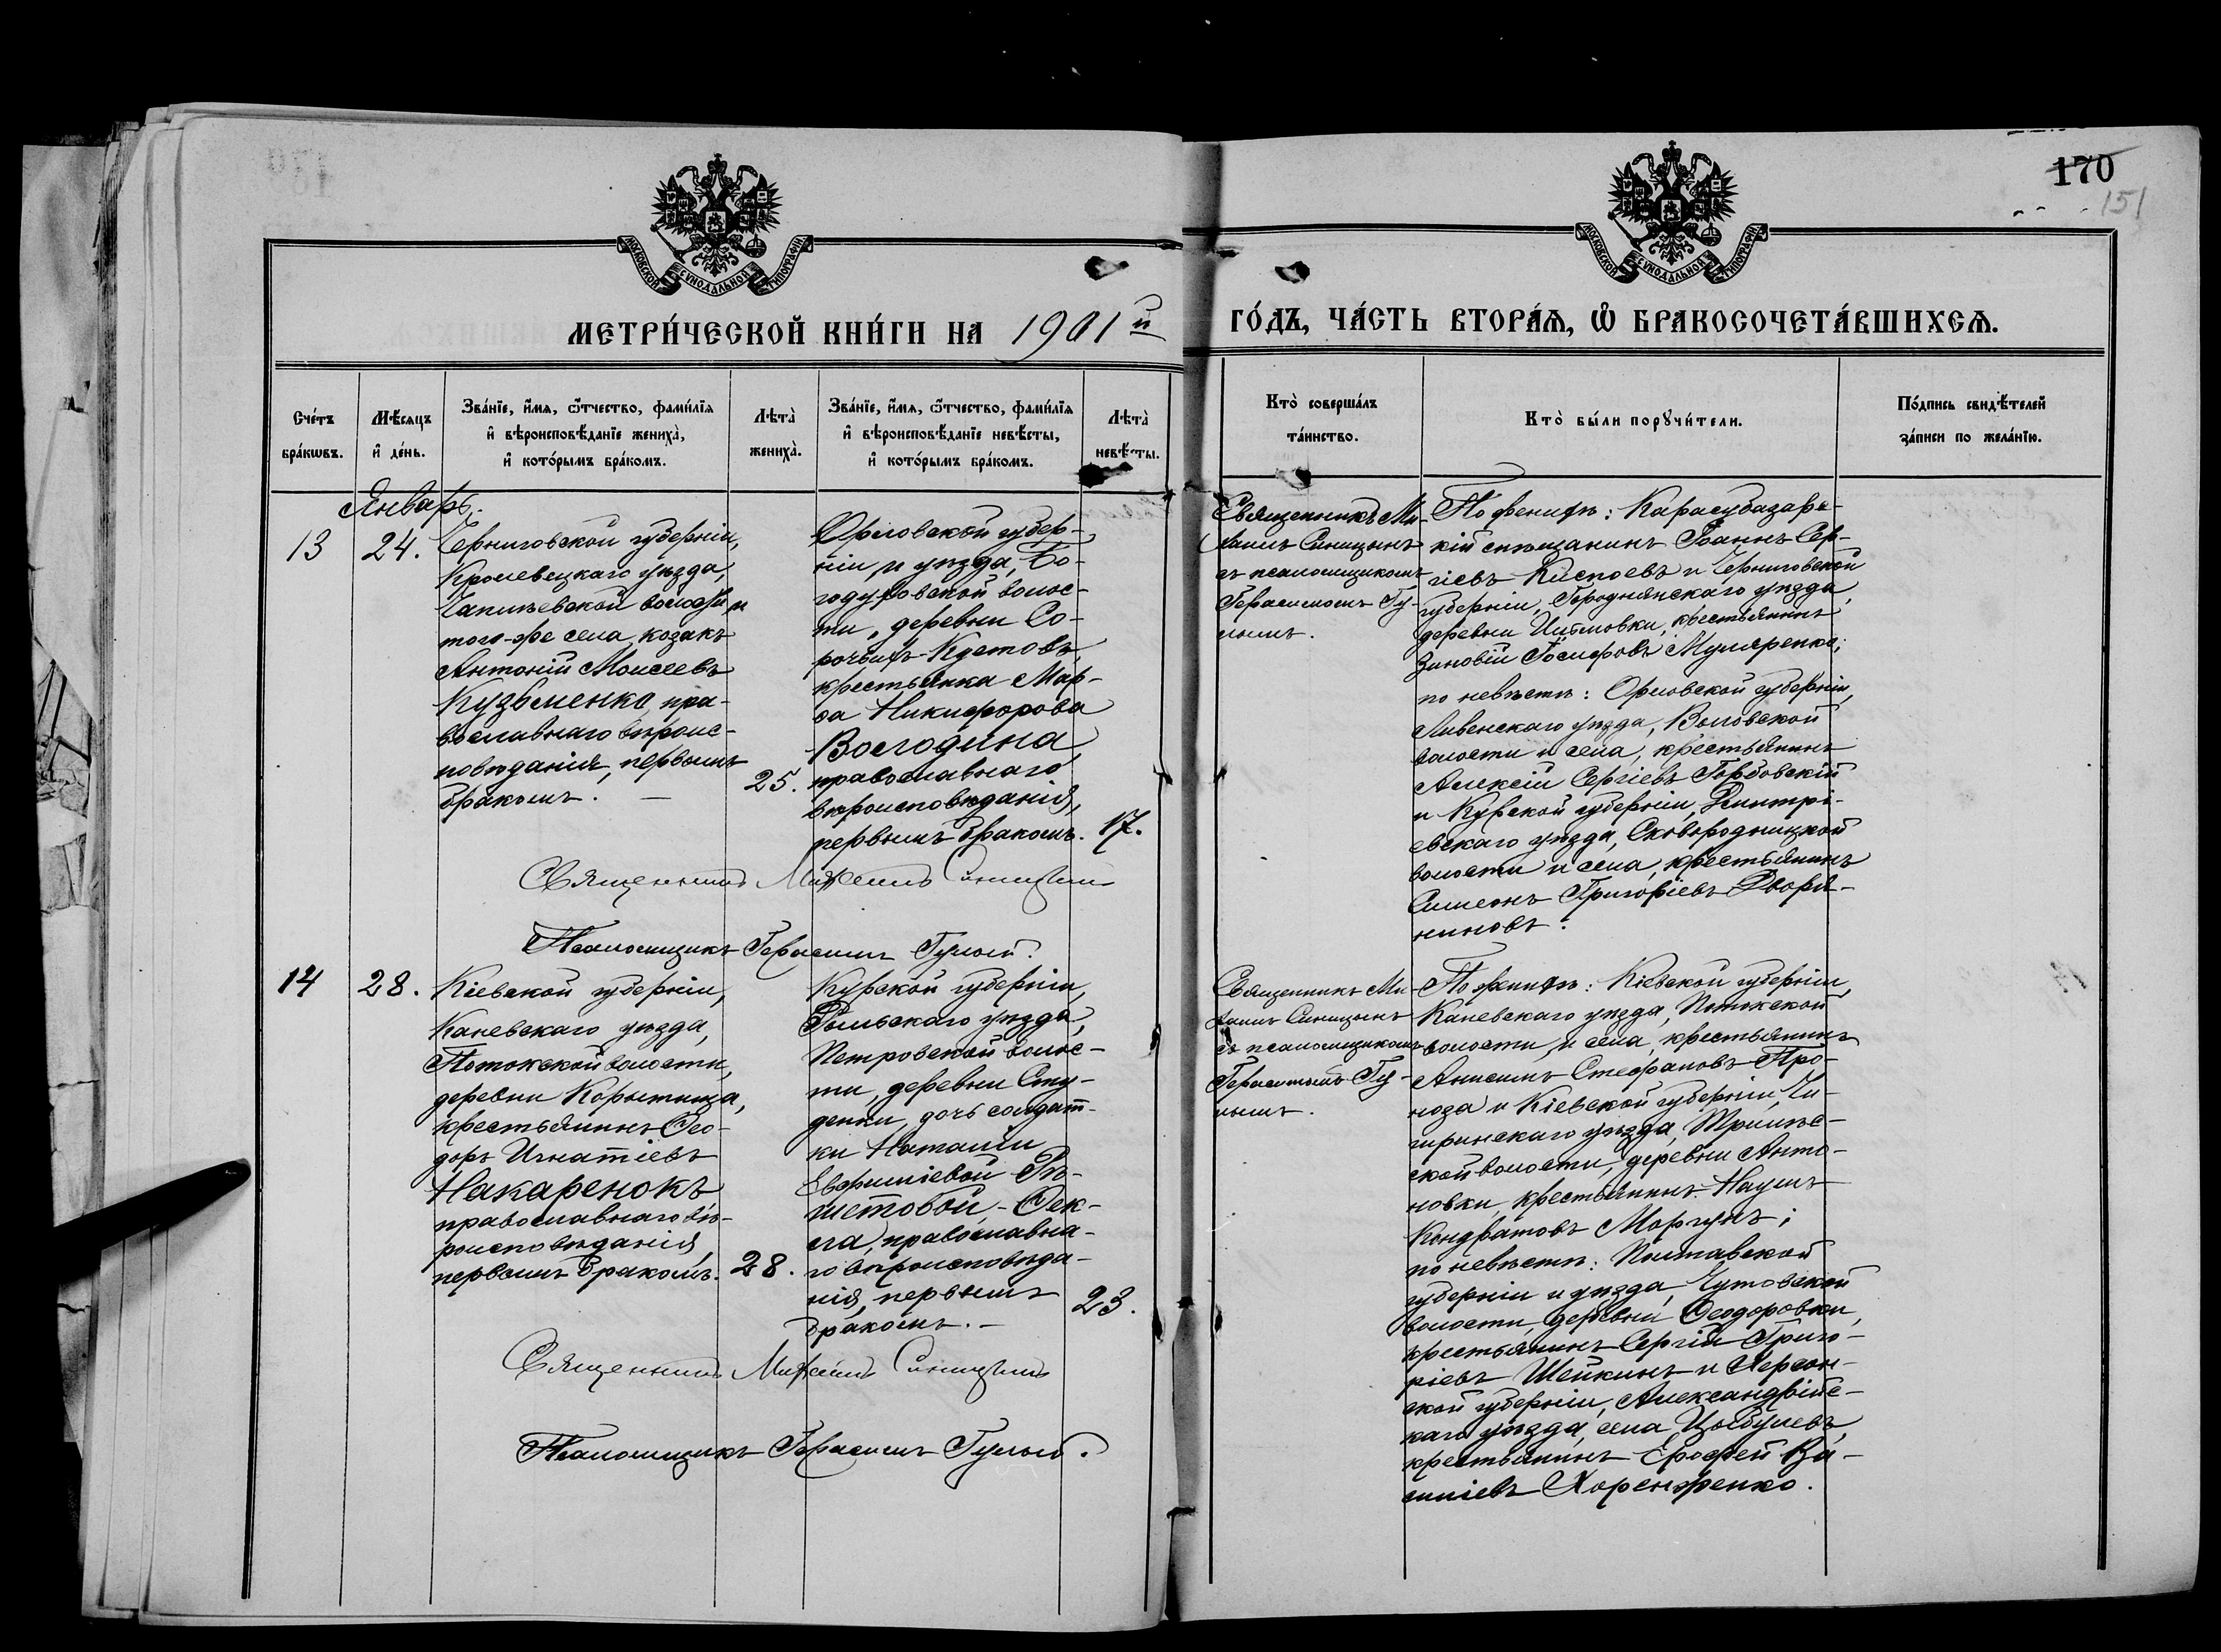 170
151
МОСКОВСКОЙ СѴНОДАЛЬНОЙ ТИПОГРАФІИ
МОСКОВСКОЙ СѴНОДАЛЬНОЙ ТИПОГРАФІИ
МЕТРИ́ЧЕСКОЙ КНИ́ГИ НА 1901й
ГО́ДЪ, ЧА́СТЬ ВТОРА́Ѧ, Ѽ БРАКОСОЧЕТА́ВШИХСѦ.
Сче́тъ
бра́кѡвъ.
Мѣ́сѧцъ
и҆ де́нь.
Зва́нїе, и҆́мѧ, ѻ҆́тчество, фамѝлїѧ
и҆ вѣроисповѣ́данїе жениха̀,
и҆ кото́рымъ бра́комъ.
Лѣта̀
жениха̀.
Зва́нїе, и҆́мѧ, ѻ҆́тчество, фамѝлїѧ
и҆ вѣроисповѣ́данїе невѣ́сты,
и҆ кото́рымъ бра́комъ.
Лѣта̀
невѣ́сты.
Кто̀ соверша́лъ
та́инство.
Кто̀ бы́ли порꙋчи́тели.
По́дпись свидѣ́телей
за́писи по жела́нїю.
Январь.
13
24.
Черниговской губерніи,
Кролевецкаго уѣзда,
Чаплѣевской волости и
того-же села, козакъ
Антоній Моисеевъ
Кузьменко, пра-
вославнаго вѣроис-
повѣданія, первымъ
бракомъ. —
25.
Орловской губер-
ніи и уѣзда, Бо-
годуровской волос-
ти, деревни Со-
рочьихъ-Кустовъ,
крестьянка Мар-
ѳа Никифорова
Вологдина,
православнаго
вѣроисповѣданія,
первымъ бракомъ.
17.
Священникъ Ми-
хаилъ Синицынъ
съ псаломщикомъ
Герасимомъ Гу-
лымъ.
По женихѣ: Карасубазарс-
кій мѣщанинъ Іоаннъ Сер-
гіевъ и Черниговской
губерніи, Городнянскаго уѣзда,
деревни крестьянинъ
Зиновій Іосифовъ Муляренко;
по невѣстѣ: Орловской губерніи,
Ливенскаго уѣзда, Воловской
волости и села, крестьянинъ
Алексій Сергіевъ Горбовскій
и Курской губерніи, Дмитрі-
евскаго уѣзда, Сковородницкой
волости и села, крестьянинъ
Симеонъ Григоріевъ Дворя-
ниновъ.
Священникъ Михаилъ Синицынъ
Псаломщикъ Герасимъ Гулый.
14
28.
Кіевской губерніи,
Каневскаго уѣзда,
Потокской волости,
деревни Корытища,
крестьянинъ Ѳео-
доръ Игнатіевъ
Накаренокъ,
православнаго вѣ-
роисповѣданія,
первымъ бракомъ.
28.
Курской губерніи,
Рыльскаго уѣзда,
Петровской волос-
ти, деревни Сту-
денки, дочь солдат-
ки Наталіи
Евфиміевой Рѣ-
шетовой, - Ѳек-
ла, православна-
го вѣроисповѣда-
нія, первымъ
бракомъ. —
23.
Священникъ Ми-
хаилъ Синицынъ
съ псаломщикомъ
Герасимомъ Гу-
лымъ.
По женихѣ: Кіевской губерніи,
Каневскаго уѣзда, Потокской
волости и села, крестьянинъ
Анисимъ Стефановъ Про-
ноза и Кіевской губерніи, Чи-
гиринскаго уѣзда, Трилѣс-
ской волости, деревни Анто-
новки, крестьянинъ Наумъ
Кондратовъ Моргунъ;
по невѣстѣ: Полтавской
губерніи и уѣзда, Чутовской
волости, деревни Ѳеодоровки,
крестьянинъ Сергій Григо-
ріевъ Шейкинъ и Херсон-
ской губерніи, Александрійс-
каго уѣзда, села Цыбулевъ,
крестьянинъ Ерофей Ва-
силіевъ Хоренженко.
Священникъ Михаилъ Синицынъ
Псаломщикъ Герасимъ Гулый.